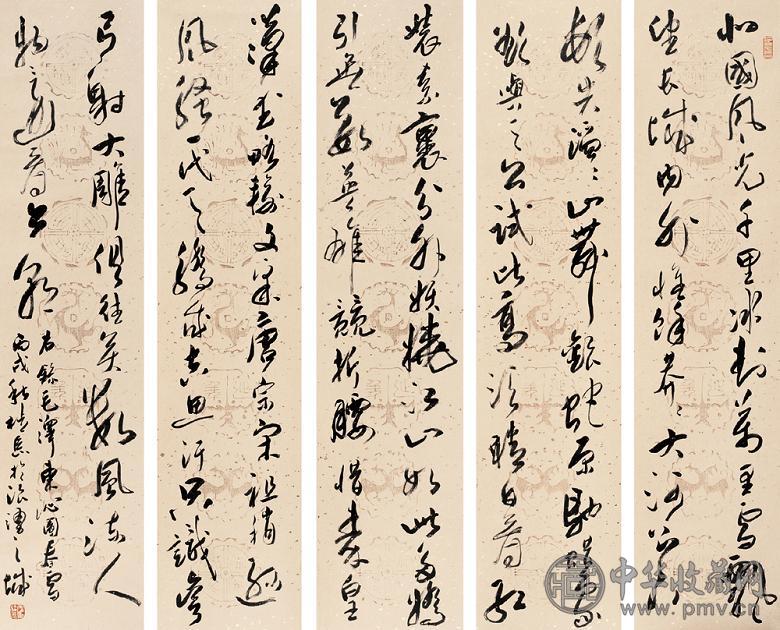 北國風光千里冰封萬里雪飄
望長城內外惟餘莽莽大河上下
頓失滔滔山舞銀蛇原馳蠟象
欲與天公試比高須晴日看紅
裝素裹分外妖嬈江山如此多嬌
引無數英雄競折腰惜秦皇
漢武略輸文采唐宗宋祖稍遜
風騷一代天驕成吉思汗只識彎
弓射大雕俱往矣數風流人
物還看今朝
右錄毛澤東沁園春雪
丙戌秋於之城
中华收藏网
www.pmv.cn